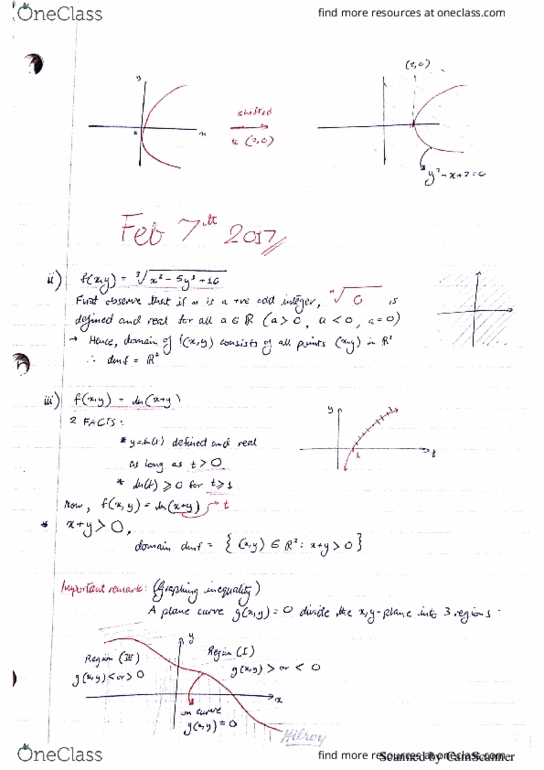 OneClass
find more resources at oneclass.com
y
x
shifted
to (2,0)
(2,0)
y² - x + 2 = 0
Feb 7th 2017
ii) f(x,y) = ³√x² - 5y³ + 16
First observe that if n is a +ve odd integer, ⁿ√a is
defined and real for all a ∈ R (a > 0, a < 0, a = 0)
→ Hence, domain of f(x,y) consists of all points (x,y) in R²
∴ dmf = R²
iii) f(x,y) = ln(x+y)
2 FACTS:
* y = ln(t) defined and real
as long as t > 0
* ln(t) ≥ 0 for t ≥ 1
y
1
t
now, f(x,y) = ln(x+y) → t
* x+y > 0,
domain dmf = { (x,y) ∈ R² : x+y > 0 }
Important remark: (Graphing inequality)
A plane curve g(x,y) = 0 divide the x,y-plane into 3 regions:
y
Region (III)
g(x,y) < or > 0
Region (I)
g(x,y) > or < 0
x
on curve
g(x,y) = 0
Milroy
OneClass
find more resources at oneclass.com
Scanned by CamScanner